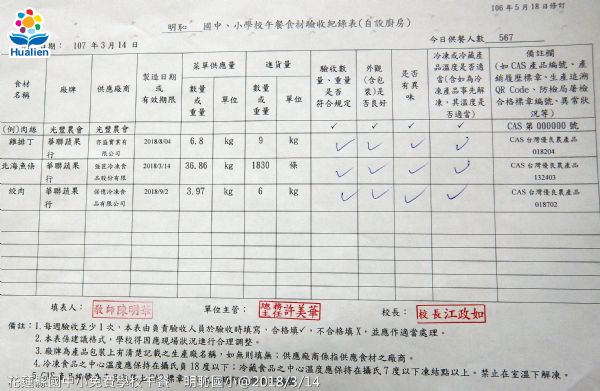 106年5月18日修訂
Hualien
明恥 國中、小學校午餐食材驗收紀錄表(自設廚房)
日期:107年3月14日 今日供餐人數 567
食材名稱 廠牌 供應廠商 製造日期或有效期限 菜單供應量 進貨量 驗收數量、重量是否符合規定 外觀(含包裝)是否良好 是否有異味 冷凍或冷藏產品溫度是否適當(含如為冷凍產品事先解凍,其溫度是否適當) 備註欄(如CAS產品編號、產銷履歷標章、生產追溯QR Code、防檢局屠檢合格標章編號、異常狀況等)
數量或重量 單位 數量或重量 單位
(例)肉絲 光豐農會 光豐農會 ✓ ✓ ✓ ✓ CAS 第 000000 號
雞排丁 華聯蔬果行 實業有限公司 2018/8/04 6.8 kg 9 kg ✓ ✓ ✓ ✓ CAS台灣優良農產品 018204
北海魚條 華聯蔬果行 冷凍食品股份有限 2018/3/14 36.86 kg 1830 條 ✓ ✓ ✓ ✓ CAS台灣優良農產品 132403
絞肉 華聯蔬果行 冷凍食品有限公司 2018/9/2 3.97 kg 6 kg ✓ ✓ ✓ ✓ CAS台灣優良農產品 018702
填表人: 教師陳明華 單位主管: 總務主任許美華 校長: 校長江政如
備註:1.每週驗收至少1次,本表由負責驗收人員於驗收時填寫,合格填✓,不合格填X,並應作適當處理。
2.本表係建議格式,學校得因應現場狀況進行合理調整。
3.廠牌為產品包裝上有清楚記載之生產廠名稱,如無則填無;供應廠商係指供應食材之廠商。
4.冷凍食品之中心溫度應保持在攝氏負18度以下;冷藏食品之中心溫度應保持在攝氏7度以下凍結點以上。禁止在室溫下解凍。
花蓮縣國中小免費學校午餐 - 明恥國小@2018/3/14